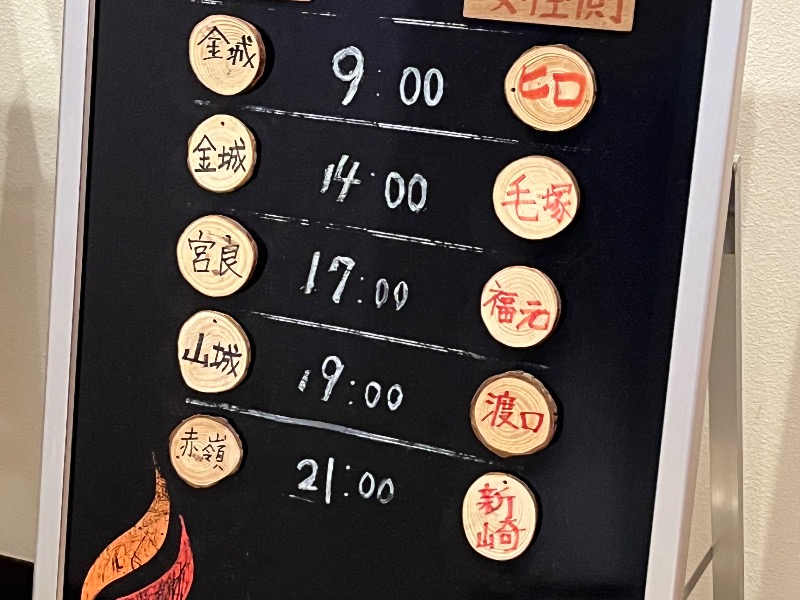 女性側
金城 9:00 ヒロ
金城 14:00 毛塚
宮良 17:00 福元
山城 19:00 渡口
赤嶺 21:00 新崎